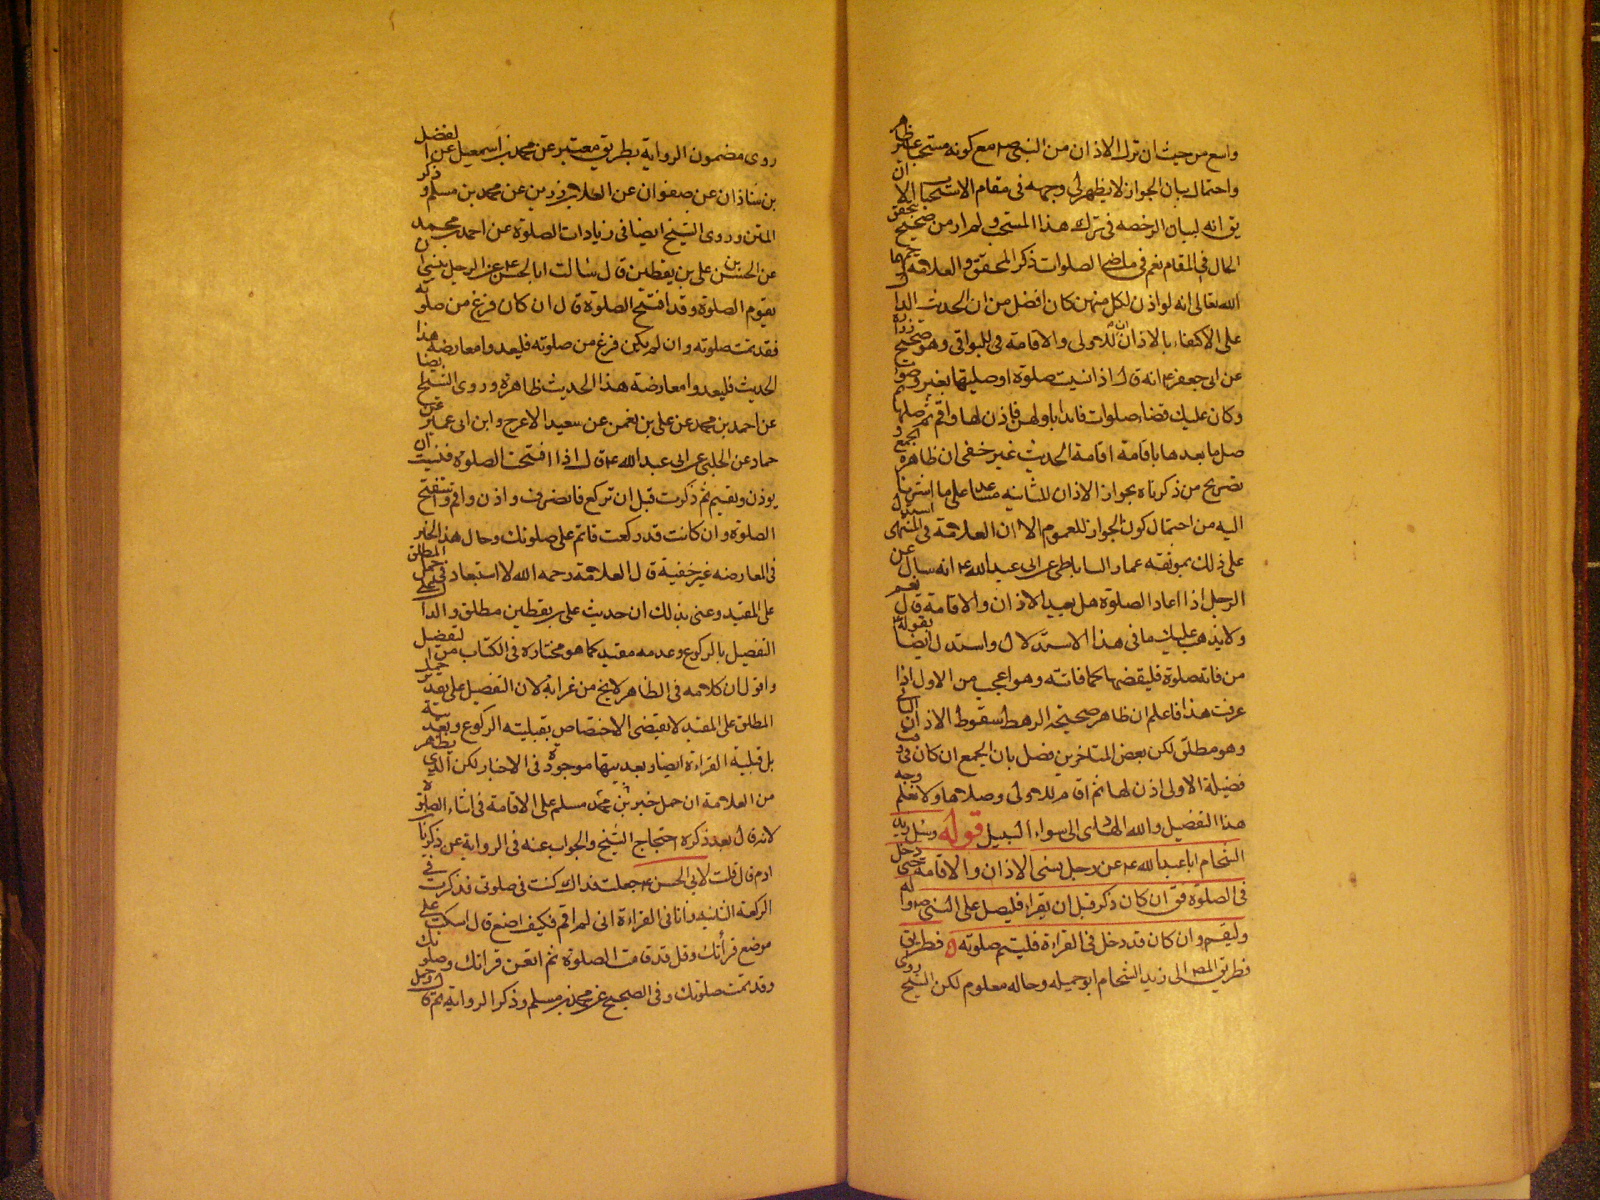 واسع من حيث ان ترك الاذان من النبي ص مع كونه مستحبا غير ظاهر
واحتمال بيان الجواز لا يظهر لى وجهه فى مقام الاستحباب الا ان
يق انه لبيان الرخصه فى ترك هذا المستحب ولم ار من صحيح
الحال فى المقام نعم فى ماضى الصلوات ذكر المحقق والعلامه
الله تعالى انه لو اذن لكل منهن كان افضل من ان الحديث الدال
على الاكتفاء بالاذان للاولى والاقامة فى للبواقى وهو صحيح زراره
عن ابى جعفر ع انه قال اذا نسيت صلوة او صليتها بغير وضوء
وكان عليك قضاء صلوات فابدا باولهن فاذن لها واقم ثم صلها ثم
صل ما بعدها باقامة اقامة الحديث غير خفى ان ظاهره
تصريح من ذكرناه بجواز الاذان للثانيه مساعدا على ما اشرنا
اليه من احتمال كون الجواز للعموم الا ان العلامة فى المنتهى استدل
على ذلك بموثقه عمار الساباطى عن ابى عبد الله ع انه سال عن
الرجل اذا اعاد الصلوة هل يعيد الاذان والاقامة قال نعم
ولا يذهب عليك ما فى هذا الاستدلال واستدل ايضا بقوله ع
من فاته صلوة فليقضها كما فاتته وهو اعجب من الاول اذا
عرفت هذا فاعلم ان ظاهر صحيحة الرهط سقوط الاذان
وهو مطلق لكن بعض المتاخرين فصل بان الجمع ان كان فى وقت
فضيلة الاولى اذن لها ثم اقام للاولى وصلاها ولا نعلم وجه
هذا التفصيل والله الهادى الى سواء السبيل قوله وسئل زيد
الشحام ابا عبد الله ع عن رجل نسى الاذان والاقامة حتى دخل
فى الصلوة فق ان كان ذكر قبل ان يقرا فليصل على النبى ص واله
وليقم وان كان قد دخل فى القراءة فليتم صلوته فطريق
فطريق المص الى زيد الشحام ابو جميله وحاله معلوم لكن الشيخ روى
روى مضمون الرواية بطريق معتبر عن محمد بن اسمعيل عن الفضل
بن شاذان عن صفوان عن العلا بن رزين عن محمد بن مسلم وذكر
المتن وروى الشيخ ايضا فى زيادات الصلوة عن احمد بن محمد
عن الحسن بن على بن يقطين قال سالت ابا الحسن ع عن الرجل ينسى ان
يقيم الصلوة وقد افتتح الصلوة قال ان كان فرغ من صلوته
فقد تمت صلوته وان لم يكن فرغ من صلوته فليعد ومعارضة هذا
الحديث فليعد ومعارضة هذا الحديث ظاهرة وروى الشيخ ايضا
عن احمد بن محمد عن على بن نعمن عن سعيد الاعرج وابن ابى عمير عن
حماد عن الحلبى عن ابى عبد الله ع قال اذا افتتحت الصلوة فنسيت ان
يوذن ويقيم ثم ذكرت قبل ان تركع فانصرف واذن واقم واستفتح
الصلوة وان كانت قد ركعت فاتم على صلوتك وحال هذا الخبر
فى المعارضه غير خفية قال العلامة رحمه الله لا استبعاد فى حمل المطلق
على المقيد وعنى بذلك ان حديث على بن يقطين مطلق والدال على
التفصيل بالركوع وعدمه مقيد كما هو مختاره فى الكتاب من التفصيل
واقول ان كلامه فى الظاهر لا يخ من غرابة لان التفصيل على تقدير حمل
المطلق على المقيد لا يقتضى الاختصاص بقبليته الركوع وبعديته
بل قبلية القراءة ايضا وبعديتها موجودة فى الاخبار لكن الذى يظهر
من العلامة ان حمل خبر بن محمد مسلم على الاقامة فى اثناء الصلوة
لانه قال بعد ذكره احتجاج الشيخ والجواب عنه فى الرواية عن زكريا بن
ادم قال قلت لابى الحسن ع جعلت فداك كنت فى صلوتى فذكرت فى
الركعة الثانيه وانا فى القراءة انى لم اقم فكيف اصنع قال اسكت على
موضع قرأتك وقل قد قامت الصلوة ثم امض فى قراتك وصلوتك
وقد تمت صلوتك وفى الصحيح عن محمد بن مسلم وذكر الرواية ثم قال وحمل